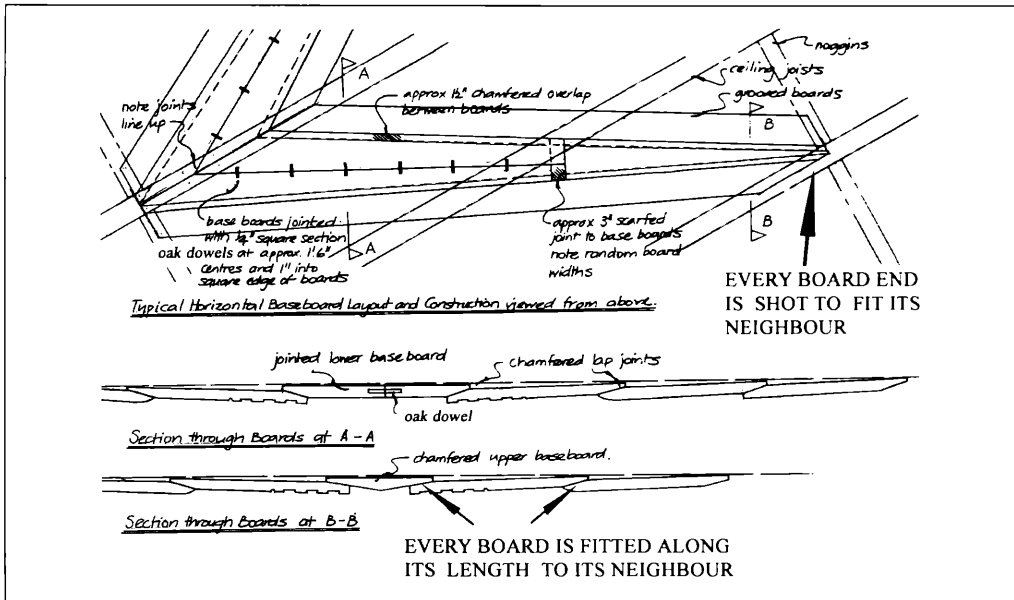 noggins
A
ceiling joists
approx 1½" chamfered overlap
between boards
grooved boards
note joints
line up
B
base boards jointed
with ¼" square section
oak dowels at approx. 1'6"
centres and 1" into
square edge of boards
A
approx 3" scarfed
joint to base boards
note random board
widths
B
EVERY BOARD END
IS SHOT TO FIT ITS
NEIGHBOUR
Typical Horizontal Baseboard Layout and Construction viewed from above.
jointed lower baseboard
chamfered lap joints
oak dowel
Section through Boards at A-A
chamfered upper baseboard.
Section through Boards at B-B
EVERY BOARD IS FITTED ALONG
ITS LENGTH TO ITS NEIGHBOUR